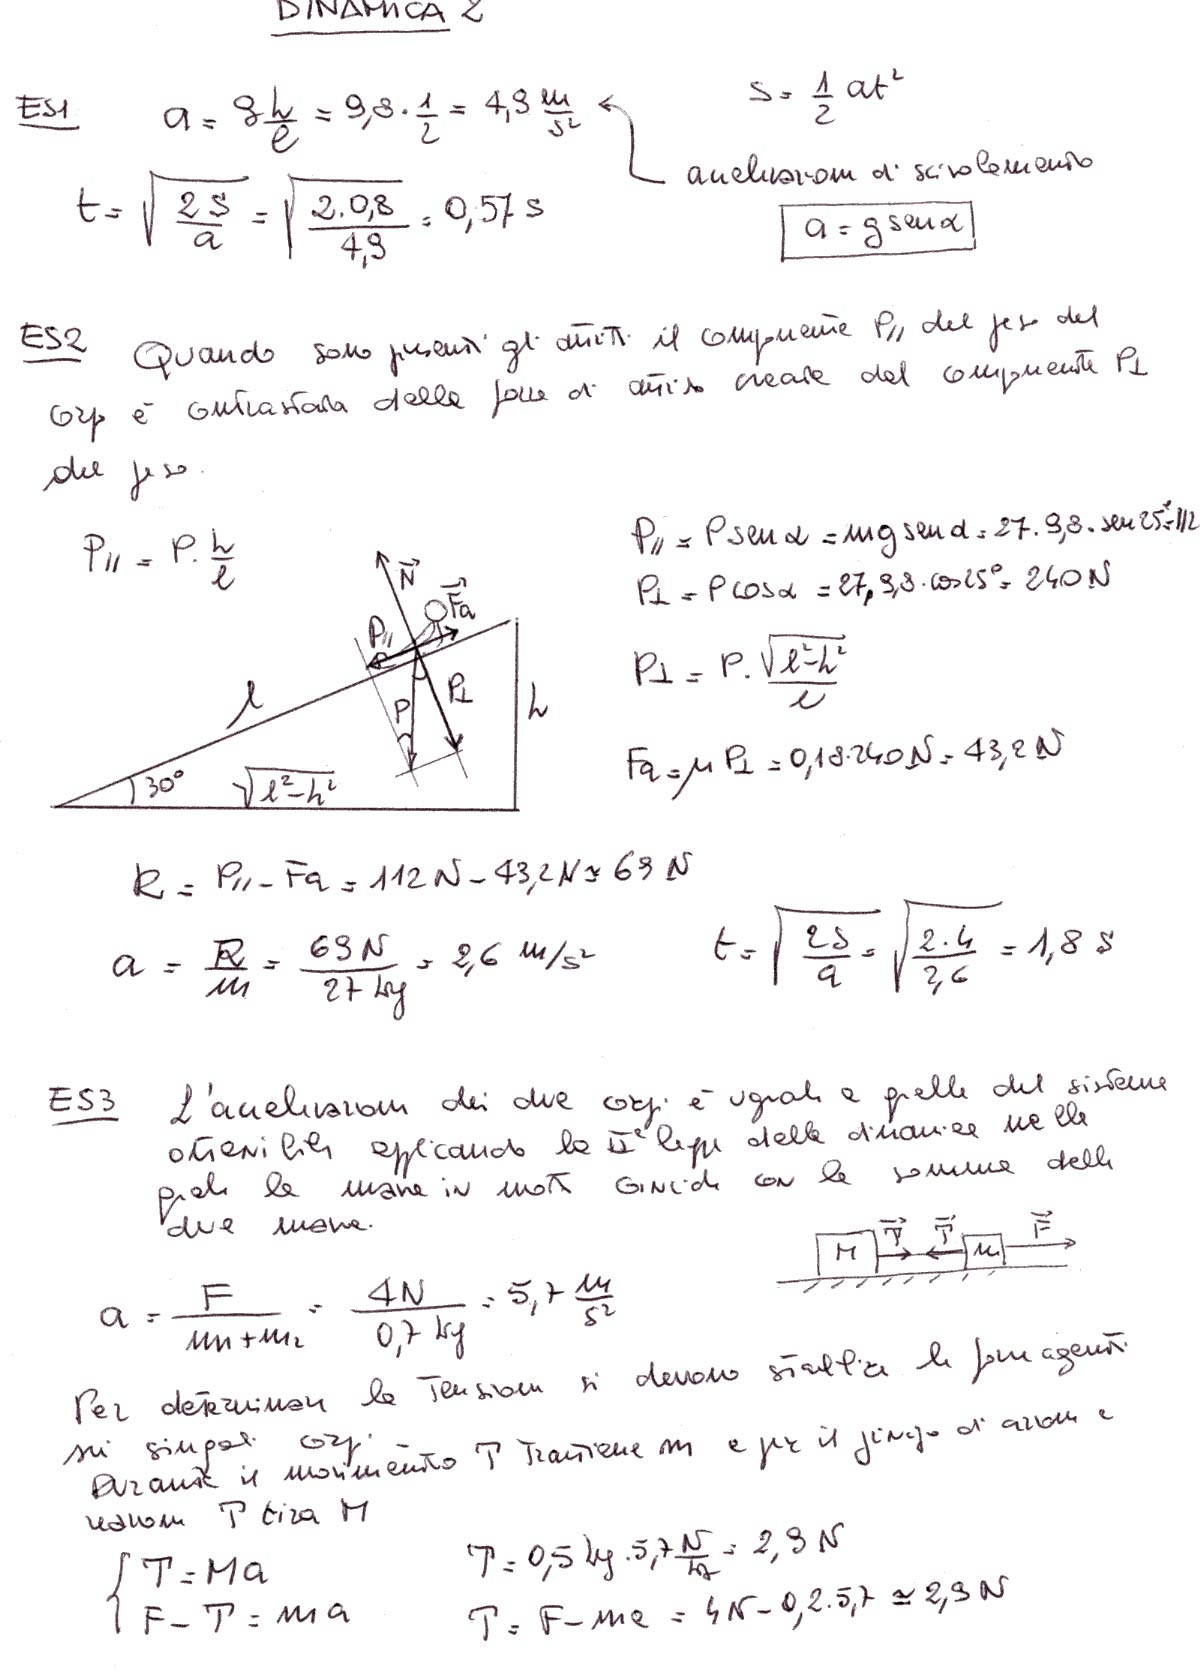 DINAMICA 2
ES1 a = g h/l = 9,8 · 1/2 = 4,9 m/s² s = 1/2 at²
accelerazione di scivolamento
t = √(2S/a) = √(2·0,8/4,9) = 0,57 s
a = g sen α
ES2 Quando sono presenti gli attriti il componente P// del peso del
corpo è contrastata dalla forza di attrito creata dal componente P⊥
del peso.
P// = P · h/l
P// = P sen α = mg sen α = 27 · 9,8 · sen 25° = 112
P⊥ = P cos α = 27 · 9,8 · cos 25° = 240 N
P⊥ = P · √(l²-h²)/l
Fa = μ P⊥ = 0,18 · 240 N = 43,2 N
N
Fa
P//
P
P⊥
l
h
30°
√(l²-h²)
R = P// - Fa = 112 N - 43,2 N ≃ 69 N
a = R/m = 69 N/27 kg = 2,6 m/s²
t = √(2S/a) = √(2·4/2,6) = 1,8 s
ES3 L'accelerazione dei due corpi è uguale a quella del sistema
ottenibile applicando la IIª legge della dinamica nella
quale la massa in moto coincide con la somma delle
due masse.
M T T m F
a = F/(m1+m2) = 4N/0,7 kg = 5,7 m/s²
Per determinare la tensione si devono stabilire le forze agenti
sui singoli corpi.
Durante il movimento T trattiene m e per il principio di azione e
reazione T tira M
T = Ma
F - T = ma
T = 0,5 kg · 5,7 N/kg = 2,9 N
T = F - ma = 4N - 0,2 · 5,7 ≃ 2,9 N